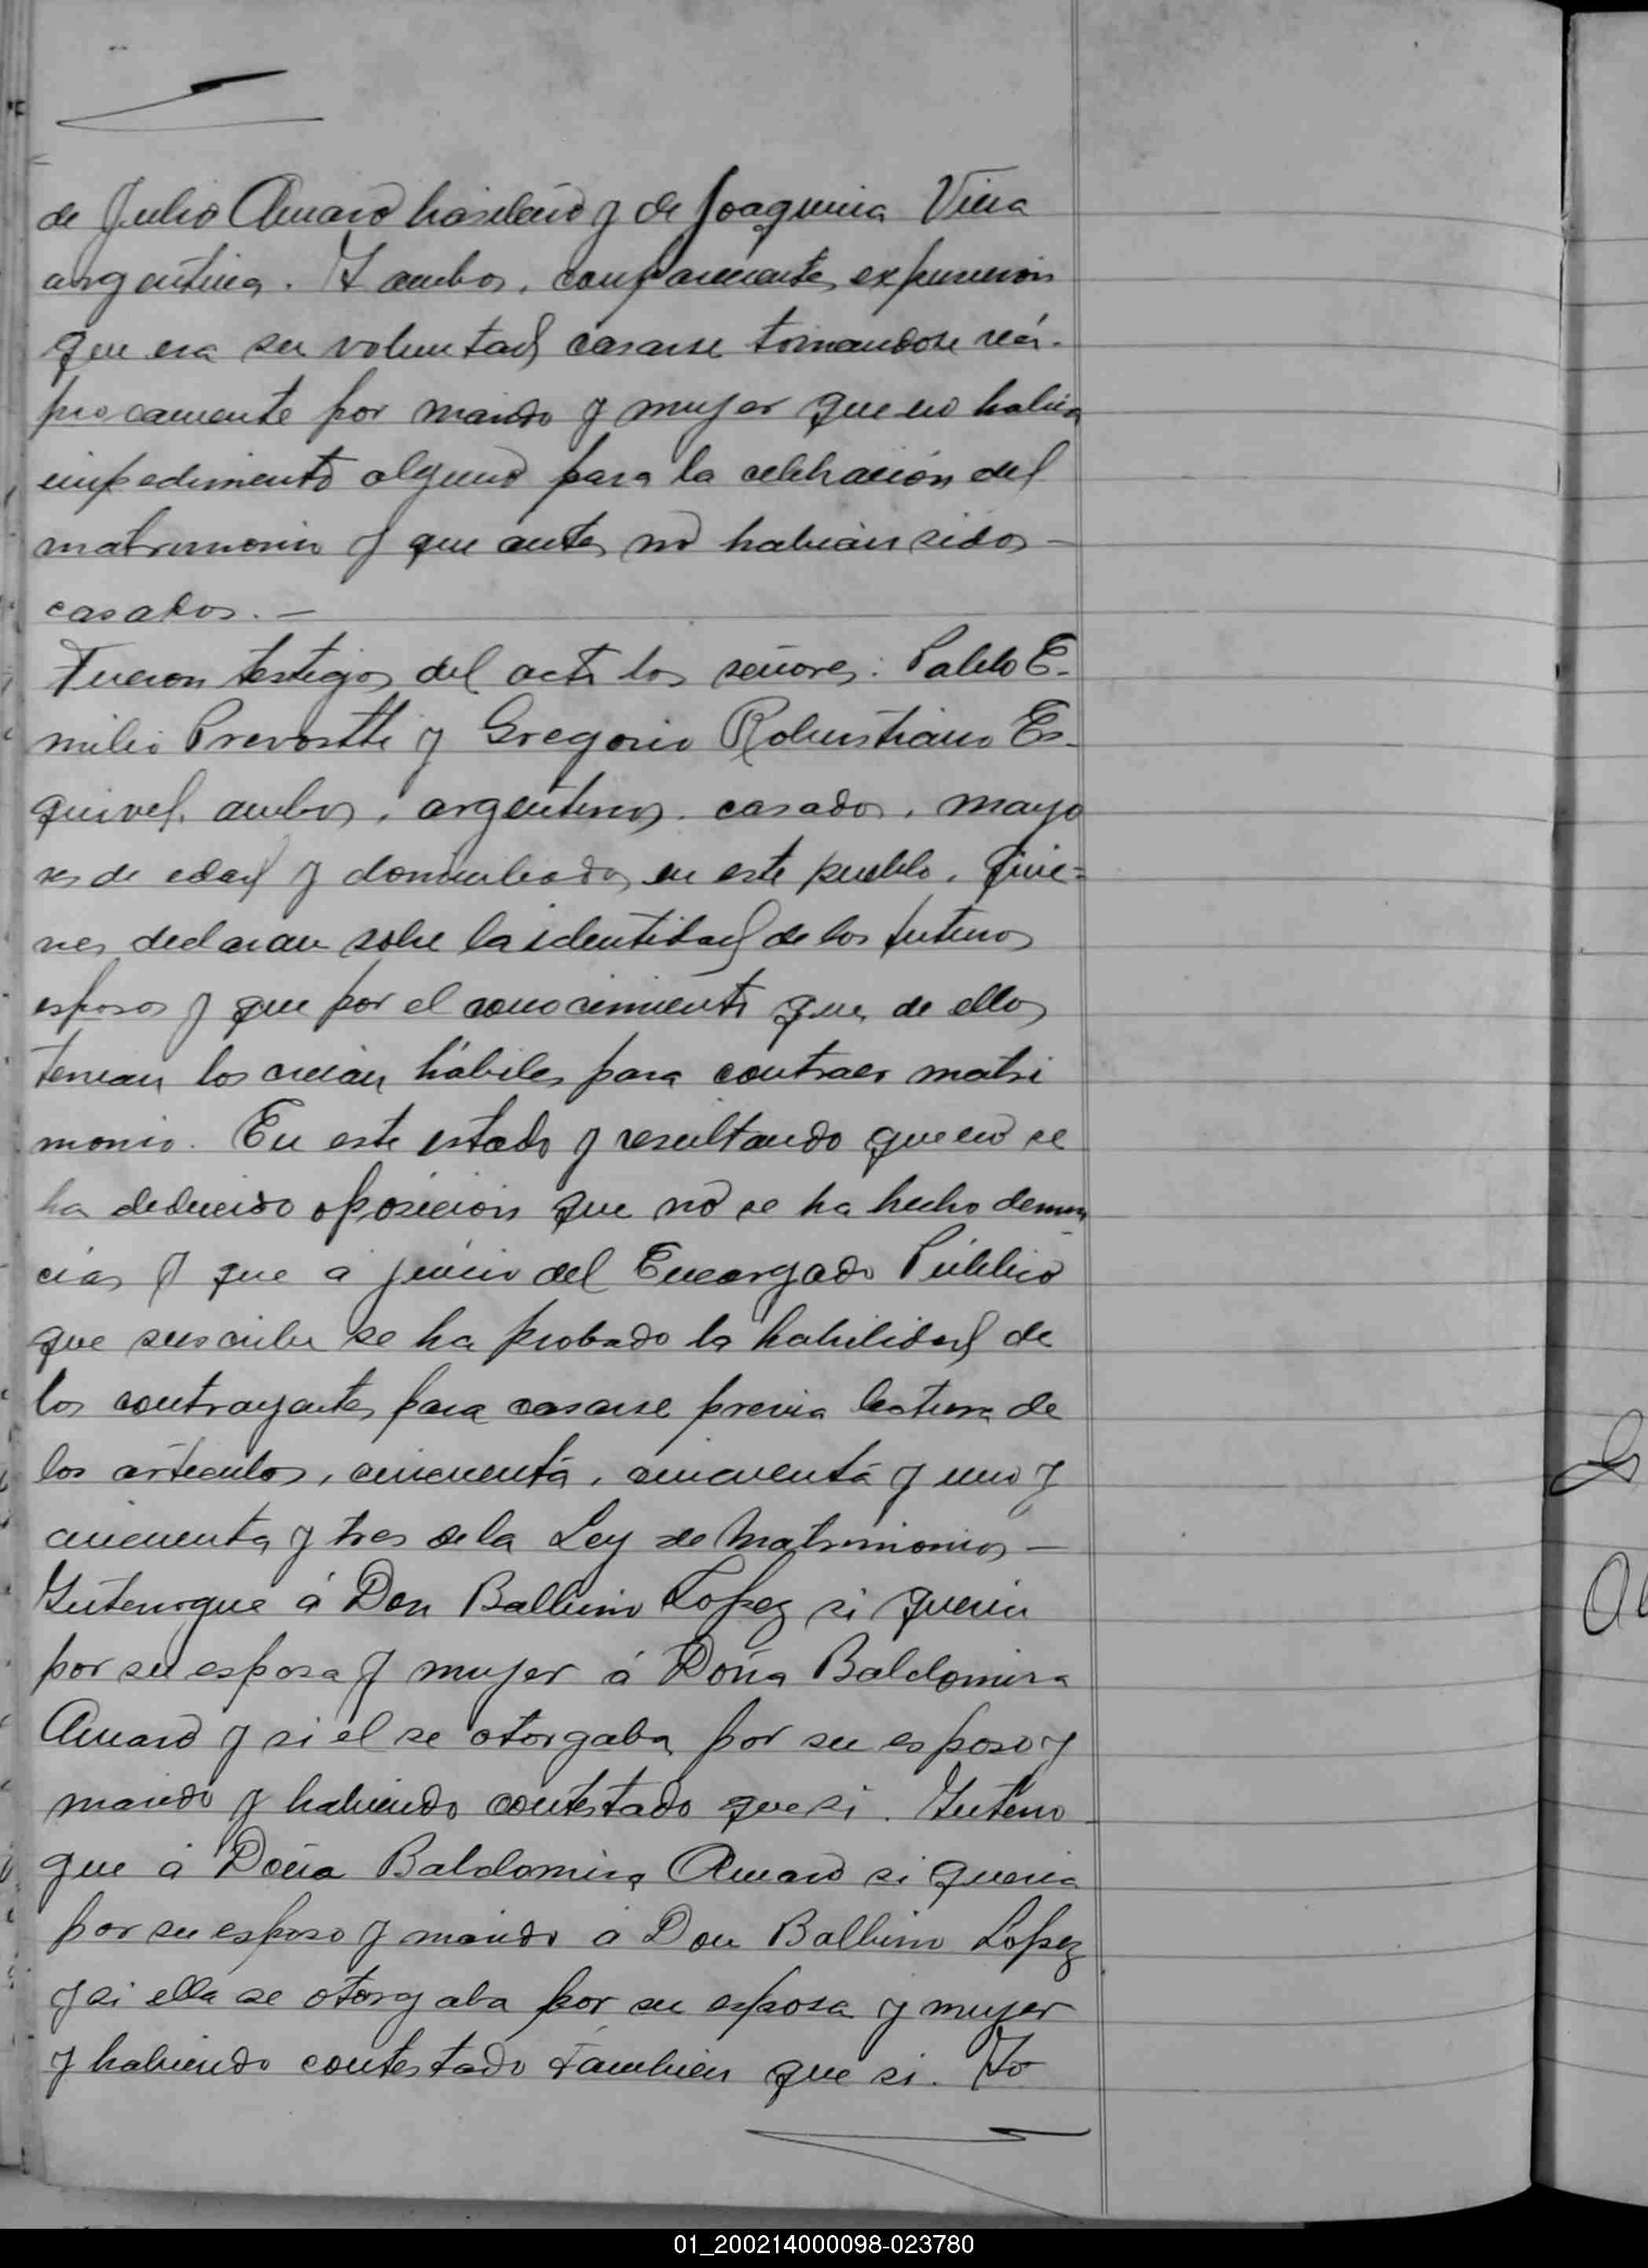 de Julio Amaro brasilero y de Joaquina Viera
argentina. Y ambos, comparecientes expusieron
que era su voluntad casarse tomandose recí-
procamente por marido y mujer que no habia
impedimento alguno para la celebración del
matrimonio y que antes no habian sidos –
casados. –
Fueron testigos del acto los señores: Pablo E-
milio Prevostti y Gregorio Robustiano Es-
quivel, ambos, argentinos, casados, mayo
res de edad y domiciliados en este pueblo, quie=
nes declaran sobre la identidad de los futuros
esposos y que por el conocimiento que de ellos
tenian los creian hábiles para contraer matri
monio. En este estado y resultando que no se
ha deducido oposicion que no se ha hecho denun
cias y que a juicio del Encargado Público
que suscribe se ha probado la habilidad de
los contrayantes para casarse previa lectura de
los artículos, cincuenta, cincuenta y uno y
cincuenta y tres de la Ley de Matrimonios –
Interrogue á Don Balbino Lopez si queria
por su esposa y mujer á Doña Baldomira
Amaro y si el se otorgaba por su esposo y
marido y habiendo contestado que si. Interro
gue á Doña Baldomira Amaro si queria
por su esposo y marido á Don Balbino Lopez
y si ella se otorgaba por su esposa y mujer
y habiendo contestado tambien que si. Yo
01_200214000098-023780